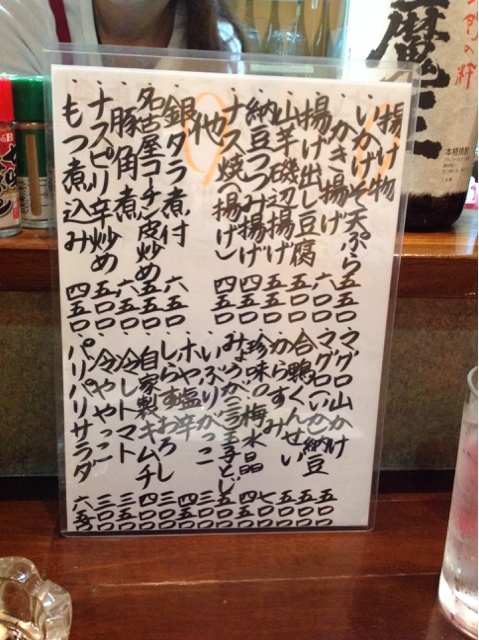 揚げ物
いかげそ天ぷら 五五〇
かき揚げ 六〇〇
揚げ出し豆腐 五〇〇
山芋磯辺揚げ 五五〇
納豆つつみ揚げ 四五〇
ナス焼(揚げ) 四五〇
他
銀ダラ煮付 六五〇
名古屋コーチン皮炒め 五五〇
豚角煮 六五〇
ナスピリ辛炒め 五〇〇
もつ煮込み 四五〇
マグロ山かけ
マグロいか納豆
合鴨くんせい
からすみ
珍味 梅水晶
みょうが玉子とじ
いぶりがっこ
ホヤ塩辛
しらすおろし
自家製キムチ
冷しトマト
冷ややっこ
パリパリサラダ
魔王
本格焼酎